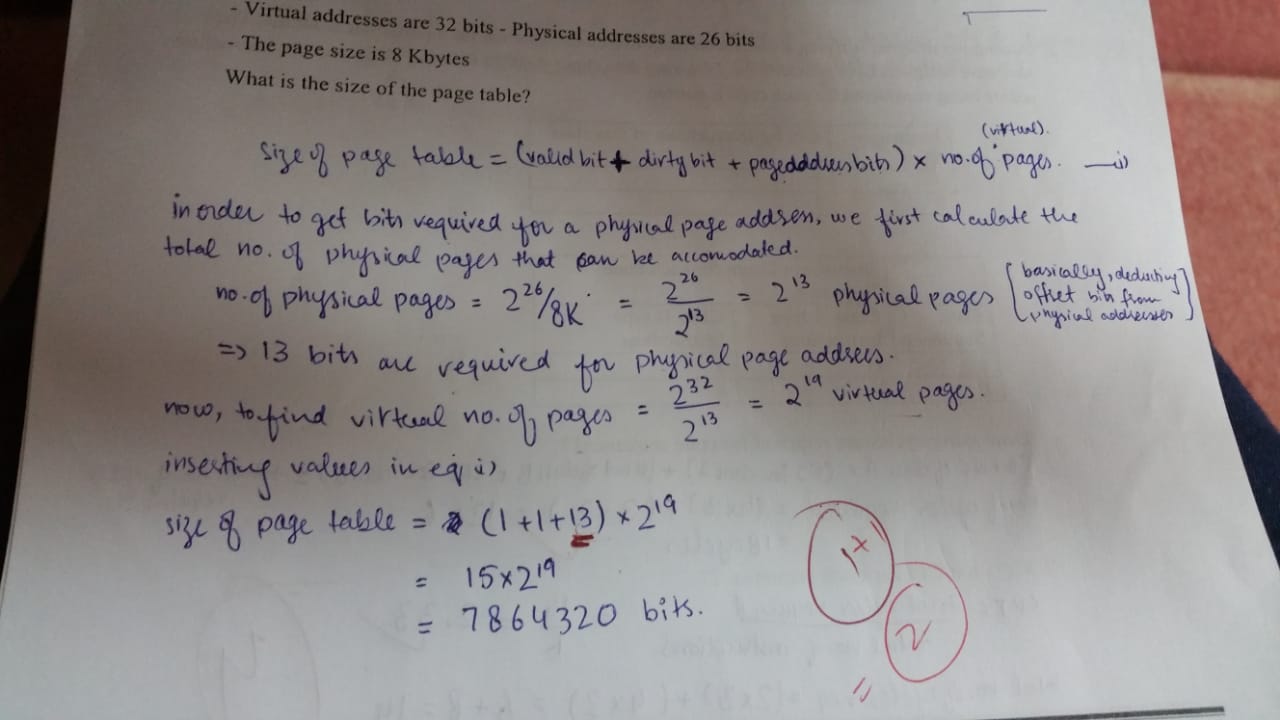 - Virtual addresses are 32 bits - Physical addresses are 26 bits
- The page size is 8 Kbytes
What is the size of the page table?
(virtual).
Size of page table = (valid bit + dirty bit + page address bits) × no. of pages. —(i)
in order to get bits required for a physical page address, we first calculate the
total no. of physical pages that can be accomodated.
no. of physical pages = 2²⁶/8K = 2²⁶/2¹³ = 2¹³ physical pages [basically, deducting
offset bits from
physical addresses]
=> 13 bits are required for physical page address.
now, to find virtual no. of pages = 2³²/2¹³ = 2¹⁹ virtual pages.
inserting values in eq (i)
size of page table = (1+1+13) × 2¹⁹
= 15×2¹⁹
= 7864320 bits.
2